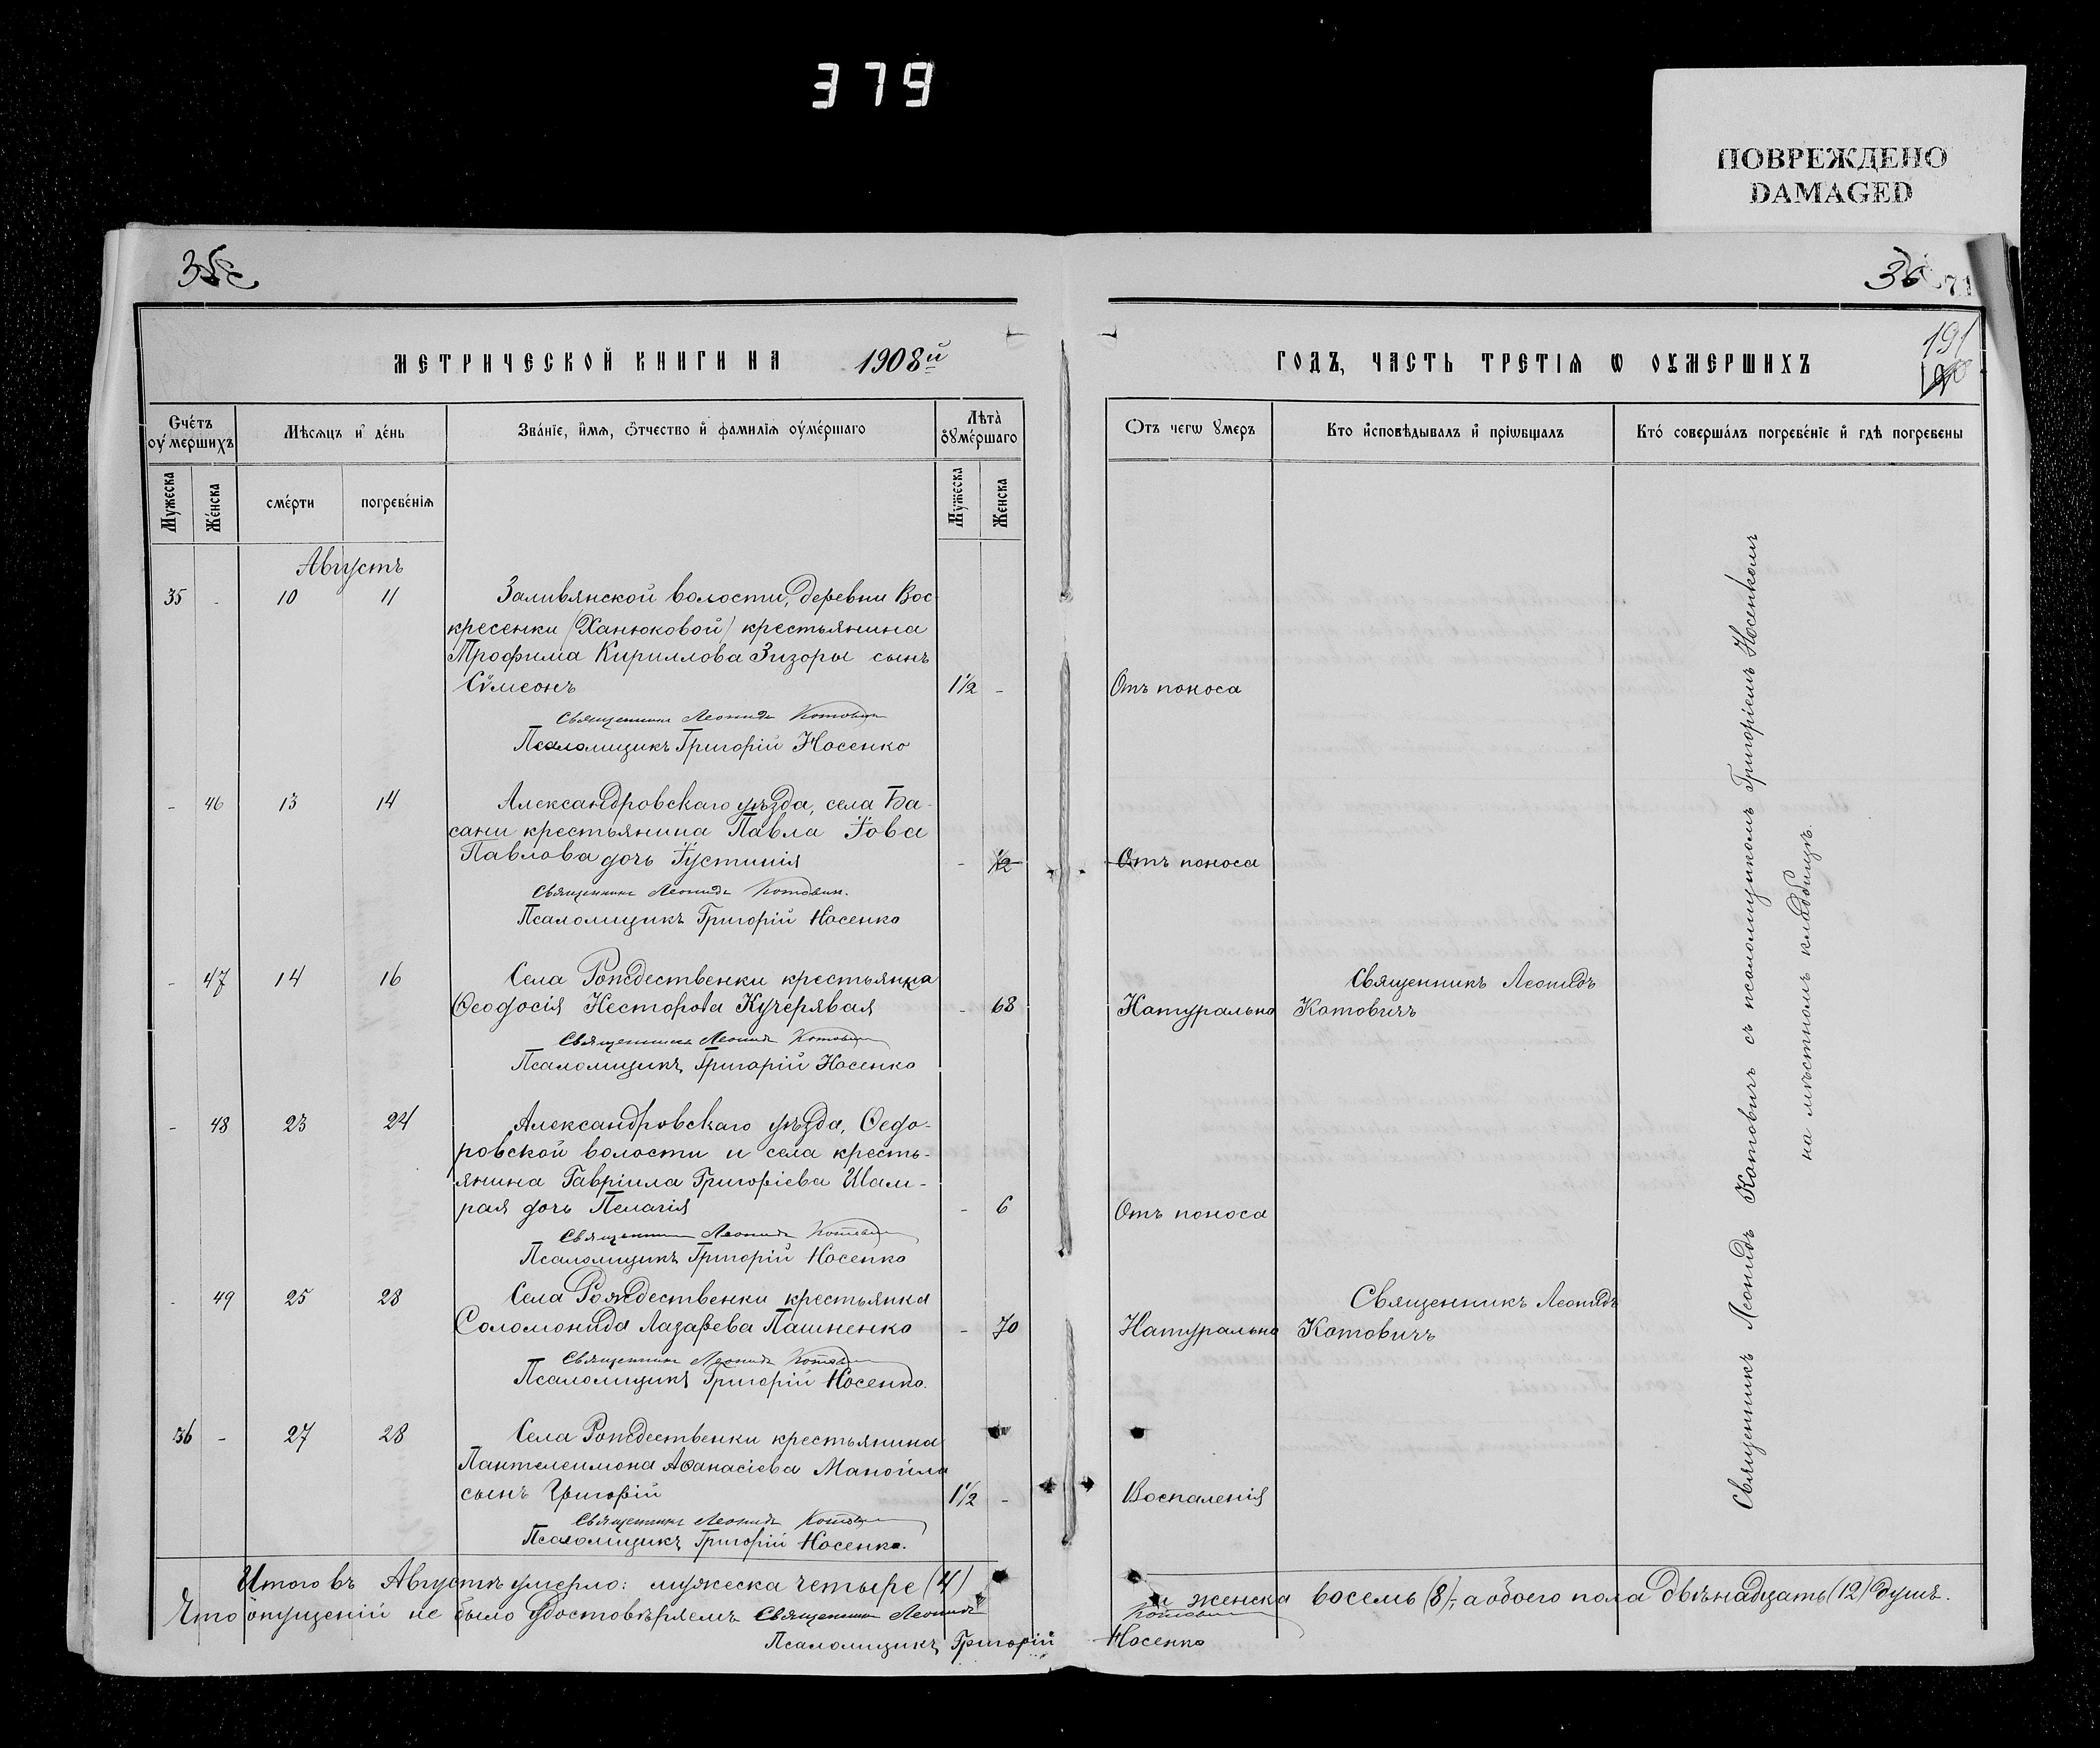 379
ПОВРЕЖДЕНО
DAMAGED
36
71
МЕТРИЧЕСКОЙ КНИГИ НА 1908й
ГОДЪ, ЧАСТЬ ТРЕТІѦ Ѡ ОУМЕРШИХЪ
191
Счетъ оумершихъ
Мѣсѧцъ и день
Званіе, имѧ, отчество и фамиліѧ оумершаго
Лѣта оумершаго
Отъ чегѡ умеръ
Кто исповѣдывалъ и пріѡбщалъ
Кто совершалъ погребеніе и гдѣ погребены
Мужеска
Женска
смерти
погребеніѧ
Мужеска
Женска
Августъ
35 - 10 11 Заливянской волости, деревни Вос-
кресенки (Ханюковой) крестьянина
Трофима Кириллова Зизоры сынъ
Сѵмеонъ 1½ - Отъ поноса
Священникъ Леонидъ Котовичъ
Псаломщикъ Григорій Носенко
- 46 13 14 Александровскаго уѣзда, села Ба-
сани крестьянина Павла Іова
Павлова дочь Іустинія - ½ Отъ поноса
Священникъ Леонидъ Котовичъ.
Псаломщикъ Григорій Носенко
- 47 14 16 Села Рождественки крестьянка
Ѳеодосія Несторова Кучерявая - 68 Натурально
Священникъ Леонидъ
Котовичъ
Священникъ Леонидъ Котовичъ
Псаломщикъ Григорій Носенко
- 48 23 24 Александровскаго уѣзда, Ѳедо-
ровской волости и села кресть-
янина Гавріила Григоріева Шам-
рая дочь Пелагія - 6 Отъ поноса
Священникъ Леонидъ Котовичъ
Псаломщикъ Григорій Носенко
- 49 25 28 Села Рождественки крестьянка
Соломонида Лазарева Пашненко - 70 Натурально
Священникъ Леонидъ
Котовичъ
Священникъ Леонидъ Котовичъ
Псаломщикъ Григорій Носенко.
36 - 27 28 Села Рождественки крестьянина
Пантелеимона Аѳанасіева Манойла
сынъ Григорій 1½ - Воспаленія
Священникъ Леонидъ Котовичъ
Псаломщикъ Григорій Носенко.
Священникъ Леонидъ Котовичъ съ псаломщикомъ Григоріемъ Носенкомъ
на мѣстномъ кладбищѣ.
Итого въ Августѣ умерло: мужеска четыре (4) и женска восемь (8), а обоего пола двѣнадцать (12) душъ.
Что опущеній не было удостовѣряемъ Священникъ Леонидъ Котовичъ
Псаломщикъ Григорій Носенко